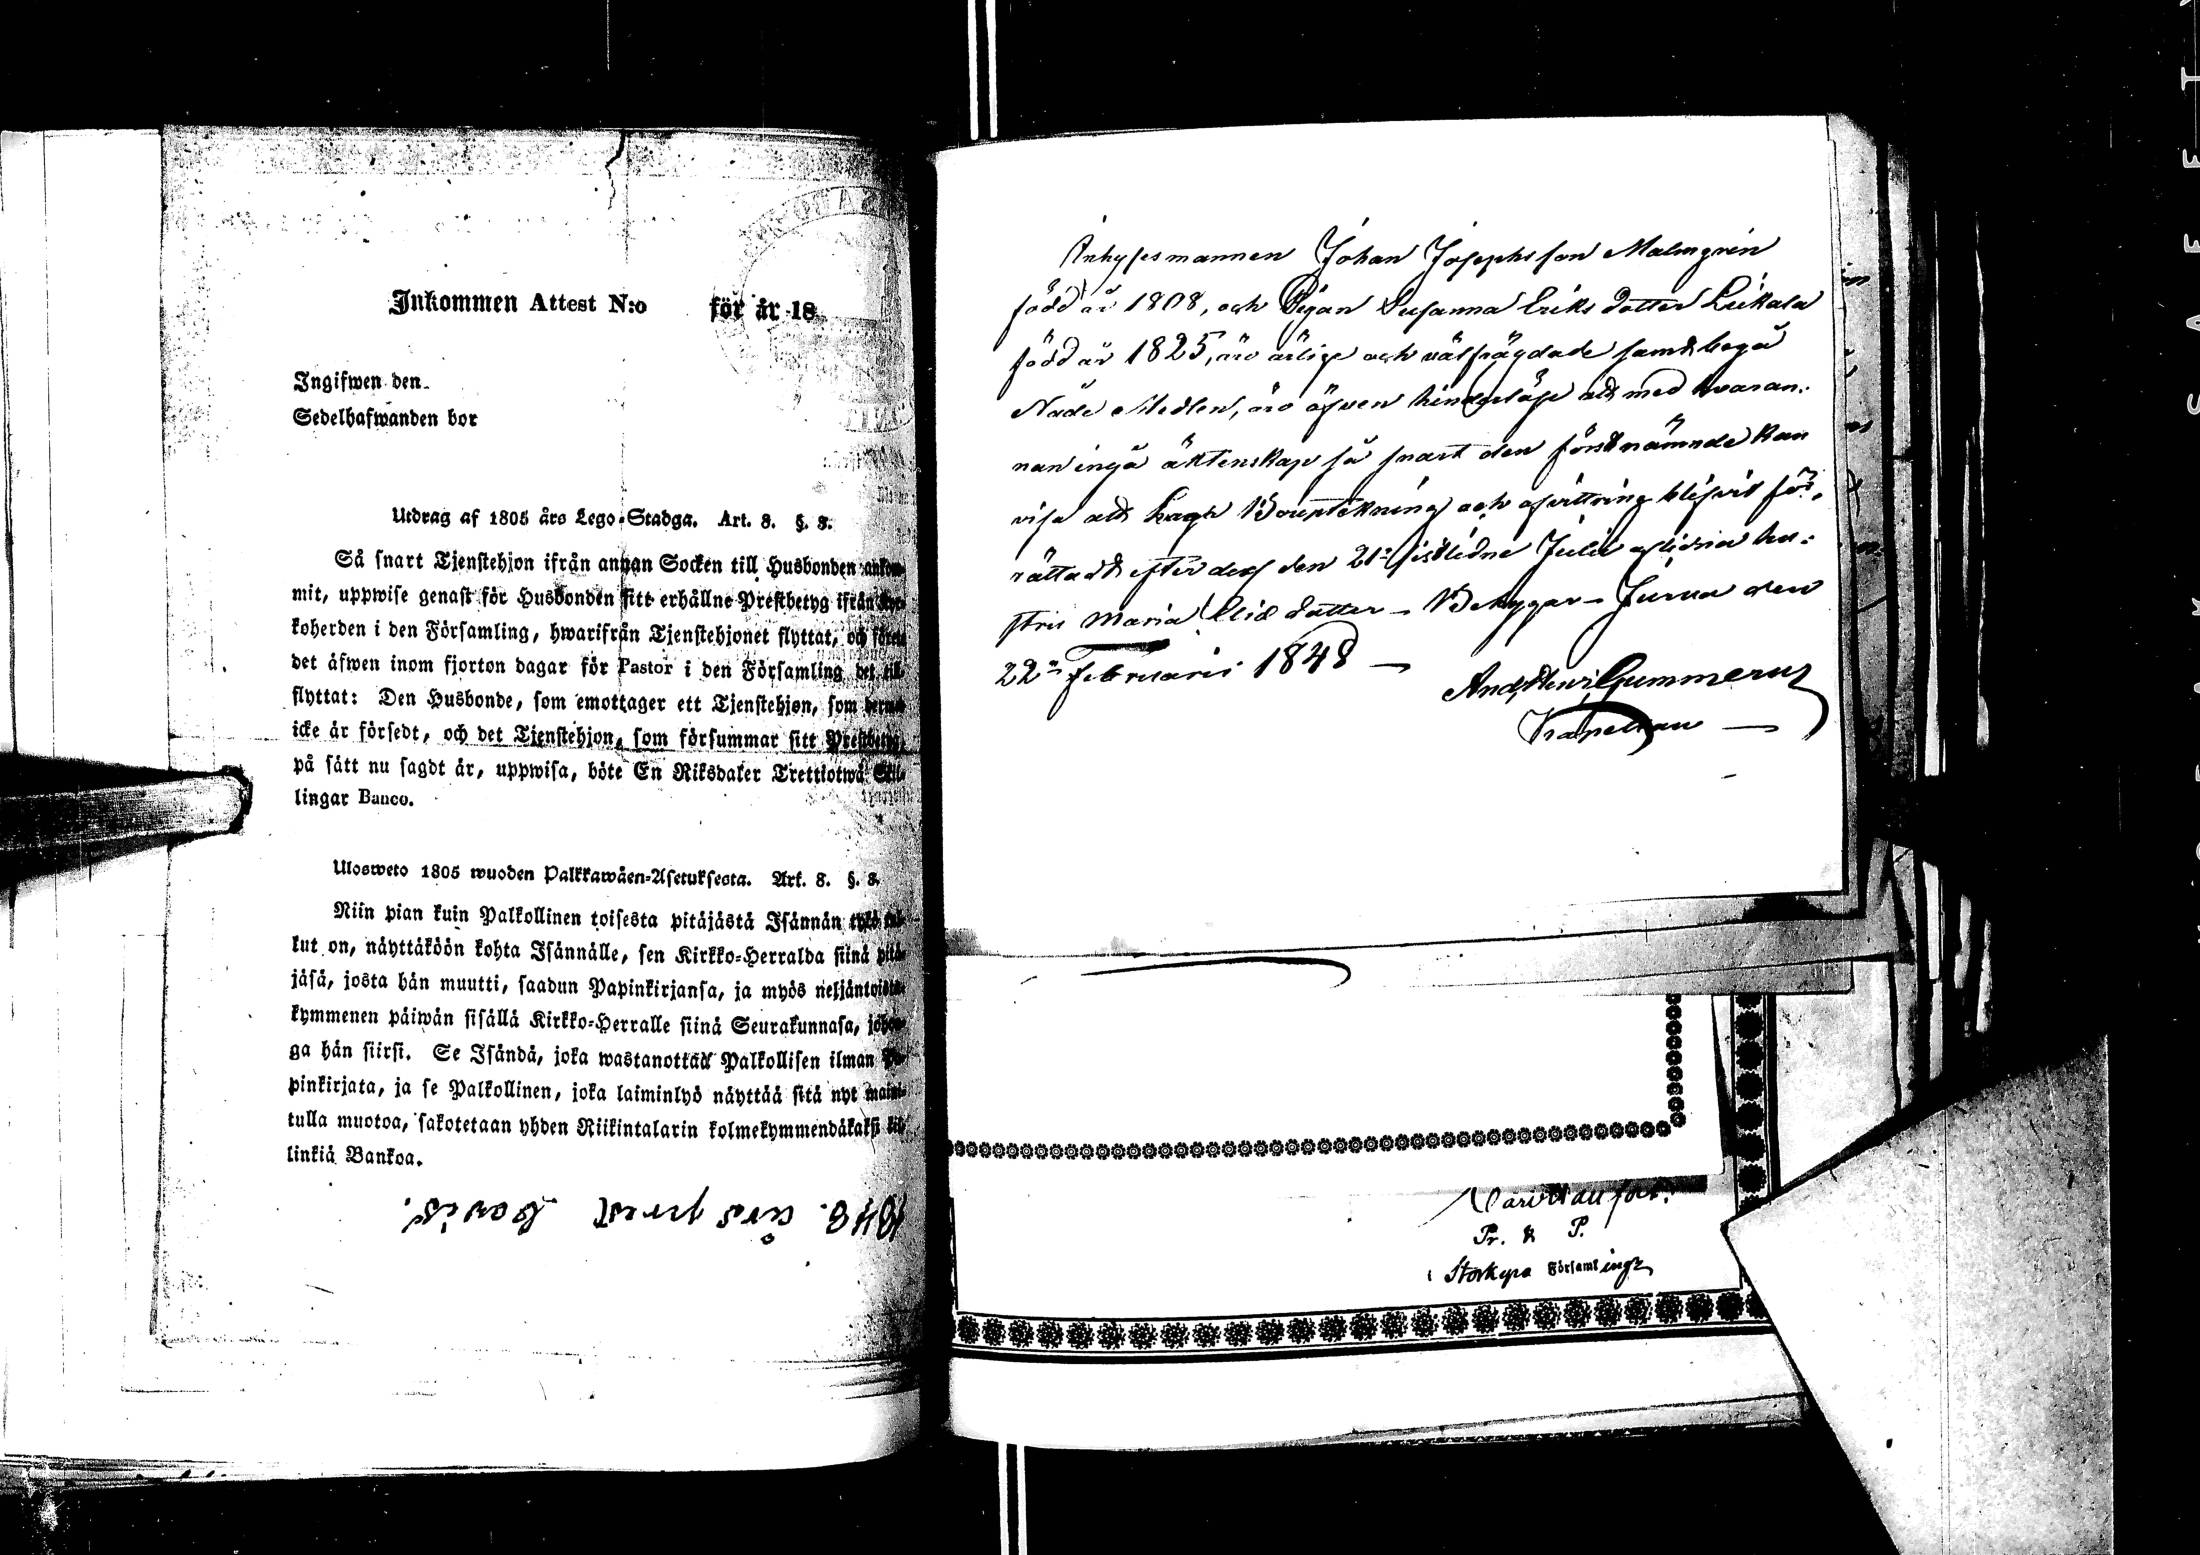 Inkommen Attest N:o för år 18
Ingifwen den
Sedelhafwanden bor
Utdrag af 1805 års Lego-Stadga. Art. 8. §. 3.
Så snart Tjenstehjon ifrån annan Socken till Husbonden ankom-
mit, uppwise genast för Husbonden sitt erhållne Prestbetyg ifrån Kyr-
koherden i den Församling, hwarifrån Tjenstehjonet flyttat, och förete
det äfwen inom fjorton dagar för Pastor i den Församling det till-
flyttat: Den Husbonde, som emottager ett Tjenstehjon, som dermed
icke är försedt, och det Tjenstehjon, som försummar sitt Prestbetyg,
på sätt nu sagdt är, uppwisa, böte En Riksdaler Trettiotwå Skil-
lingar Banco.
Ulosweto 1805 wuoden Palkkawäen-Asetuksesta. Art. 8. §. 3.
Niin pian kuin Palkollinen toisesta pitäjästä Isännän tykö tul-
kut on, näyttäköön kohta Isännälle, sen Kirkko-Herralda siinä pitä-
jäsä, josta hän muutti, saadun Papinkirjansa, ja myös neljäntoista-
kymmenen päiwän sisällä Kirkko-Herralle siinä Seurakunnasa, johon-
ga hän siirsi. Se Isändä, joka wastanottaa Palkollisen ilman Pa-
pinkirjata, ja se Palkollinen, joka laiminlyö näyttää sitä nyt maini-
tulla muotoa, sakotetaan yhden Riikintalarin kolmekymmendäkaksi kil-
linkiä Bankoa.
1848. års prest bevis.
Inhysesmannen Johan Josephsson Malmgrén
född år 1808, och Pigan Susanna Eriksdotter Leikala
född år 1825, äro ärlige och välfrägdade samt bega
Nåde Medlen, äro äfven hinderlöse att med hvaran-
nan ingå äktenskap så snart den förstnämnde kan
visa att Lagh Bouptekning och afvittring blifvit för-
rättadt efter dess den 21n sistlidne Julii aflidna hu-
stru Maria Elid dotter – Betygar – Jurva den
22n februarii 1848 —
And. Gummerus
Kapellan —
Pr. & P.
i Storkyro Församlings